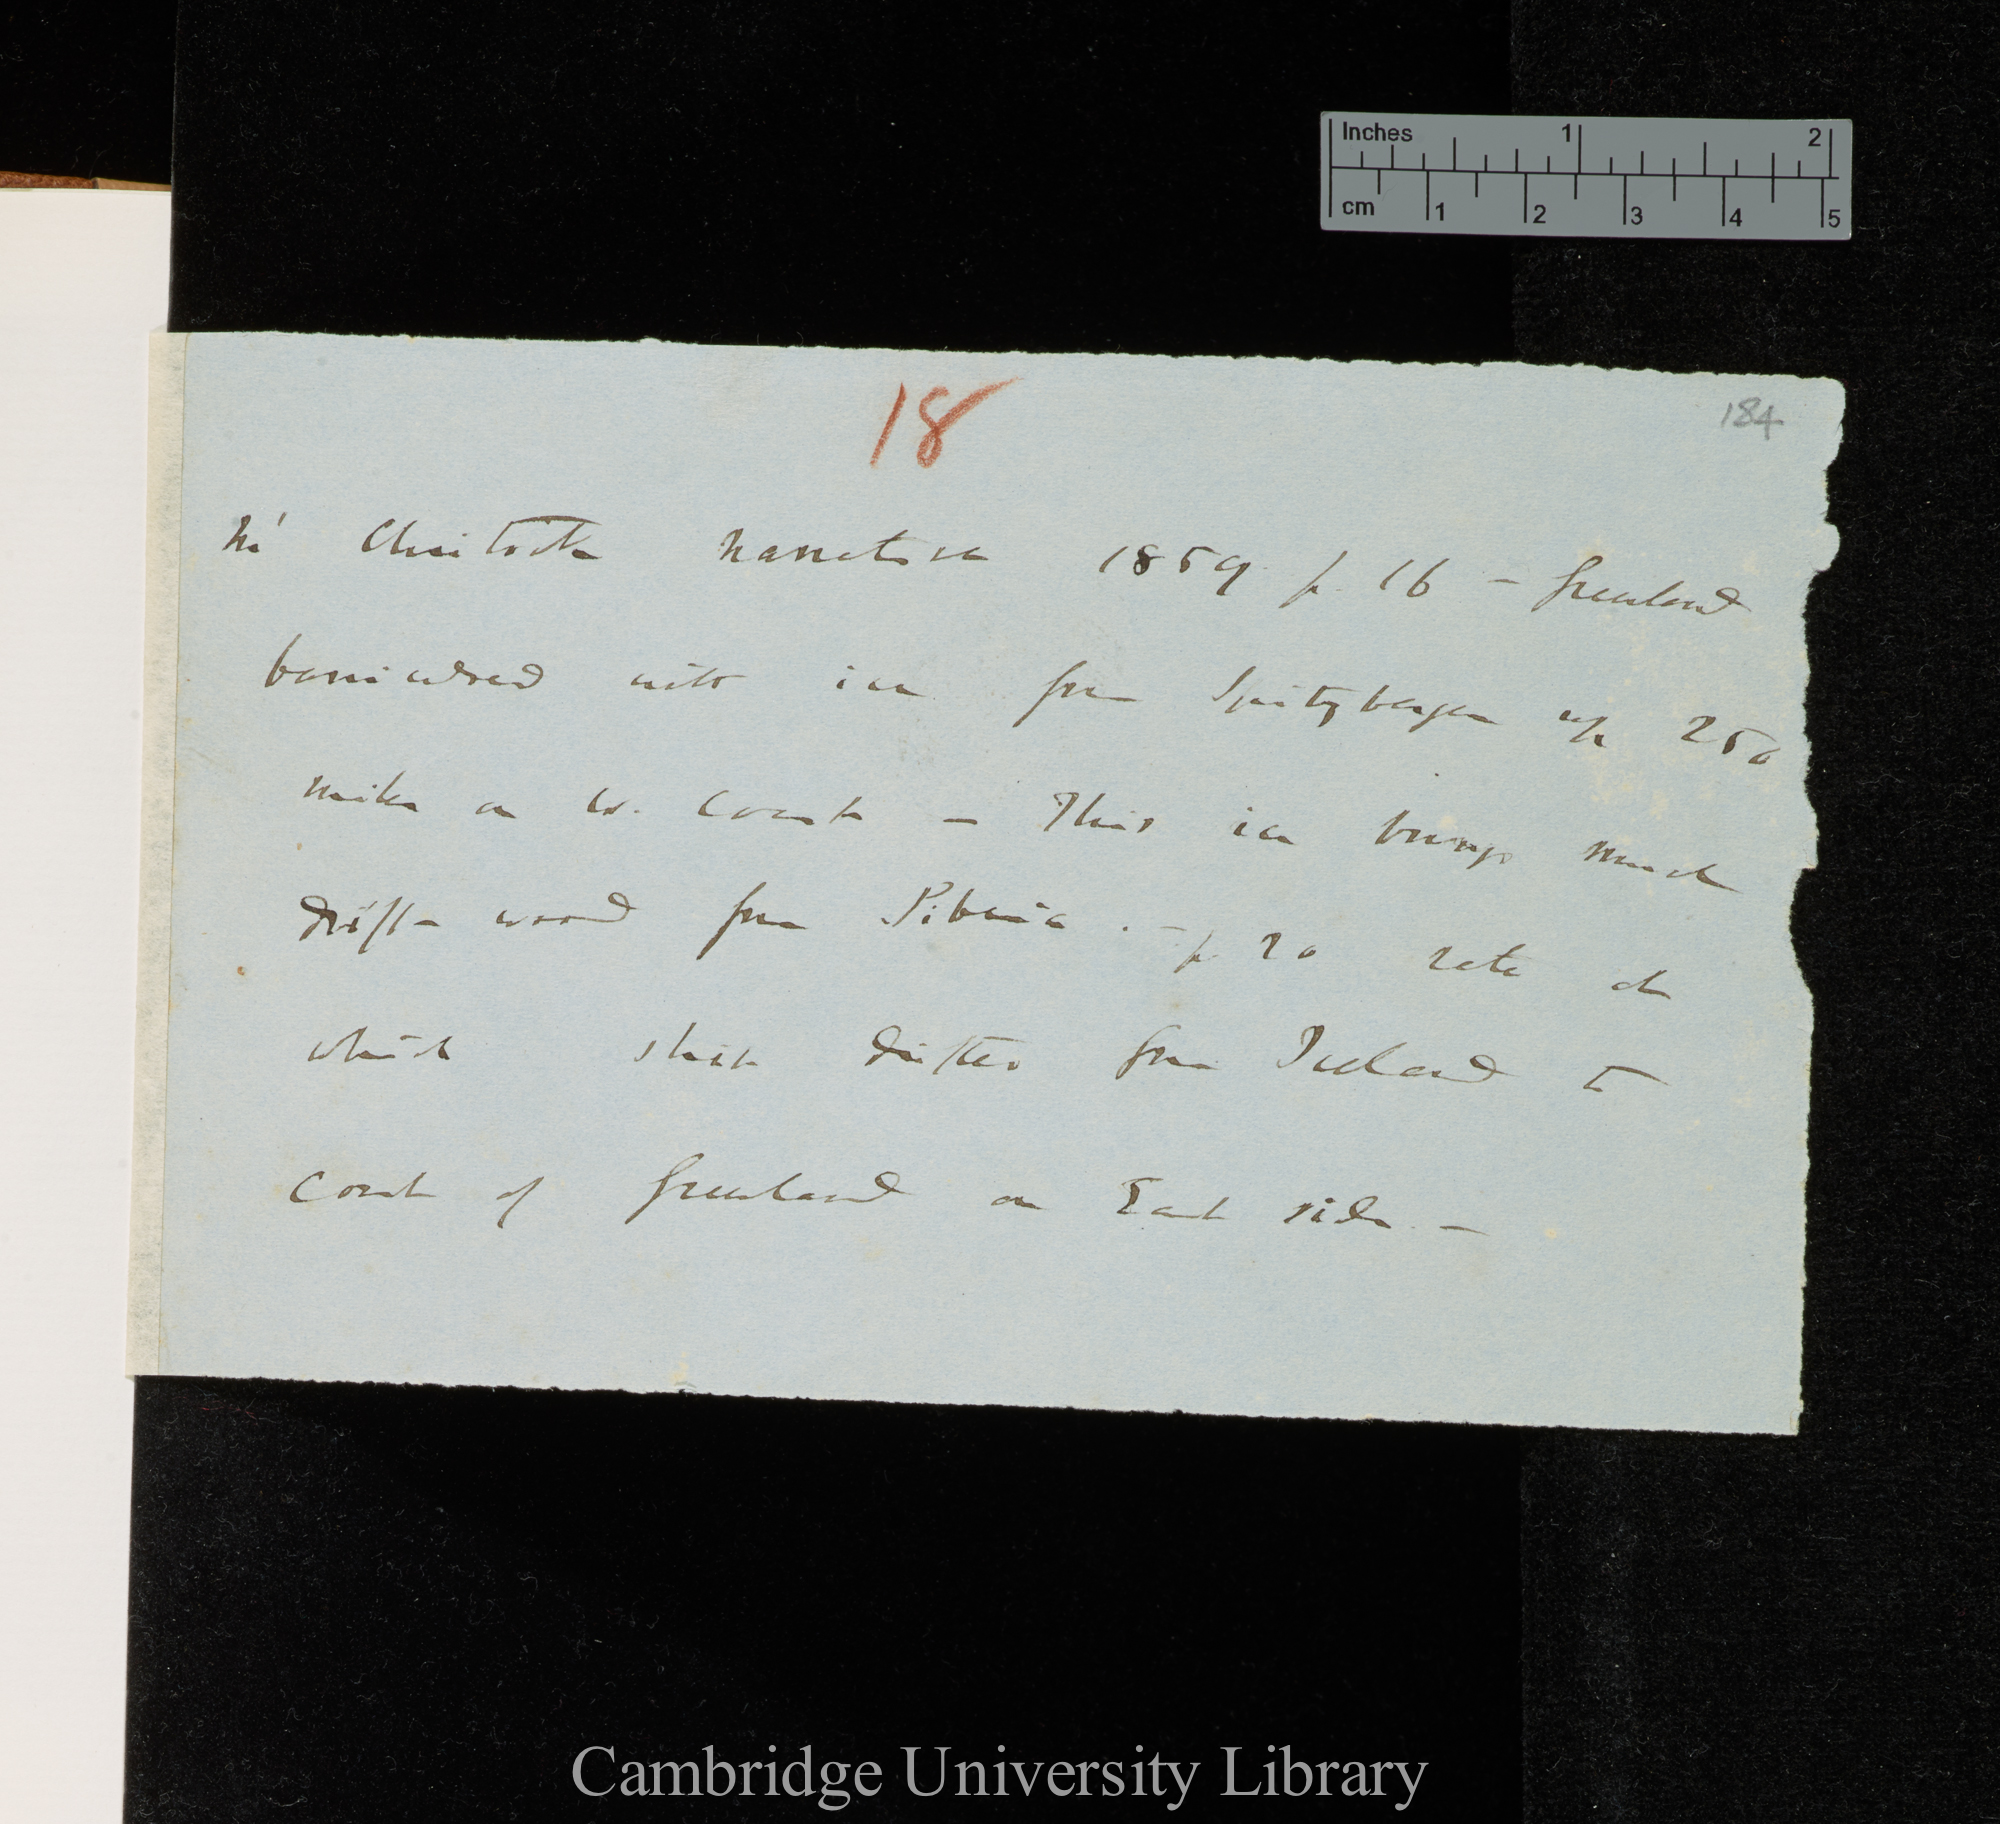 Inches 1 2
cm 1 2 3 4 5
18
184
Mc' Clintock Narrative 1859 p. 16 — Greenland
barricaded with ice from Spitzbergen up 250
miles on W. Coast — This ice brings much
drift-wood from Siberia. — p 20 rate at
which ship drifted from Iceland to
coast of Greenland on East side. —
Cambridge University Library